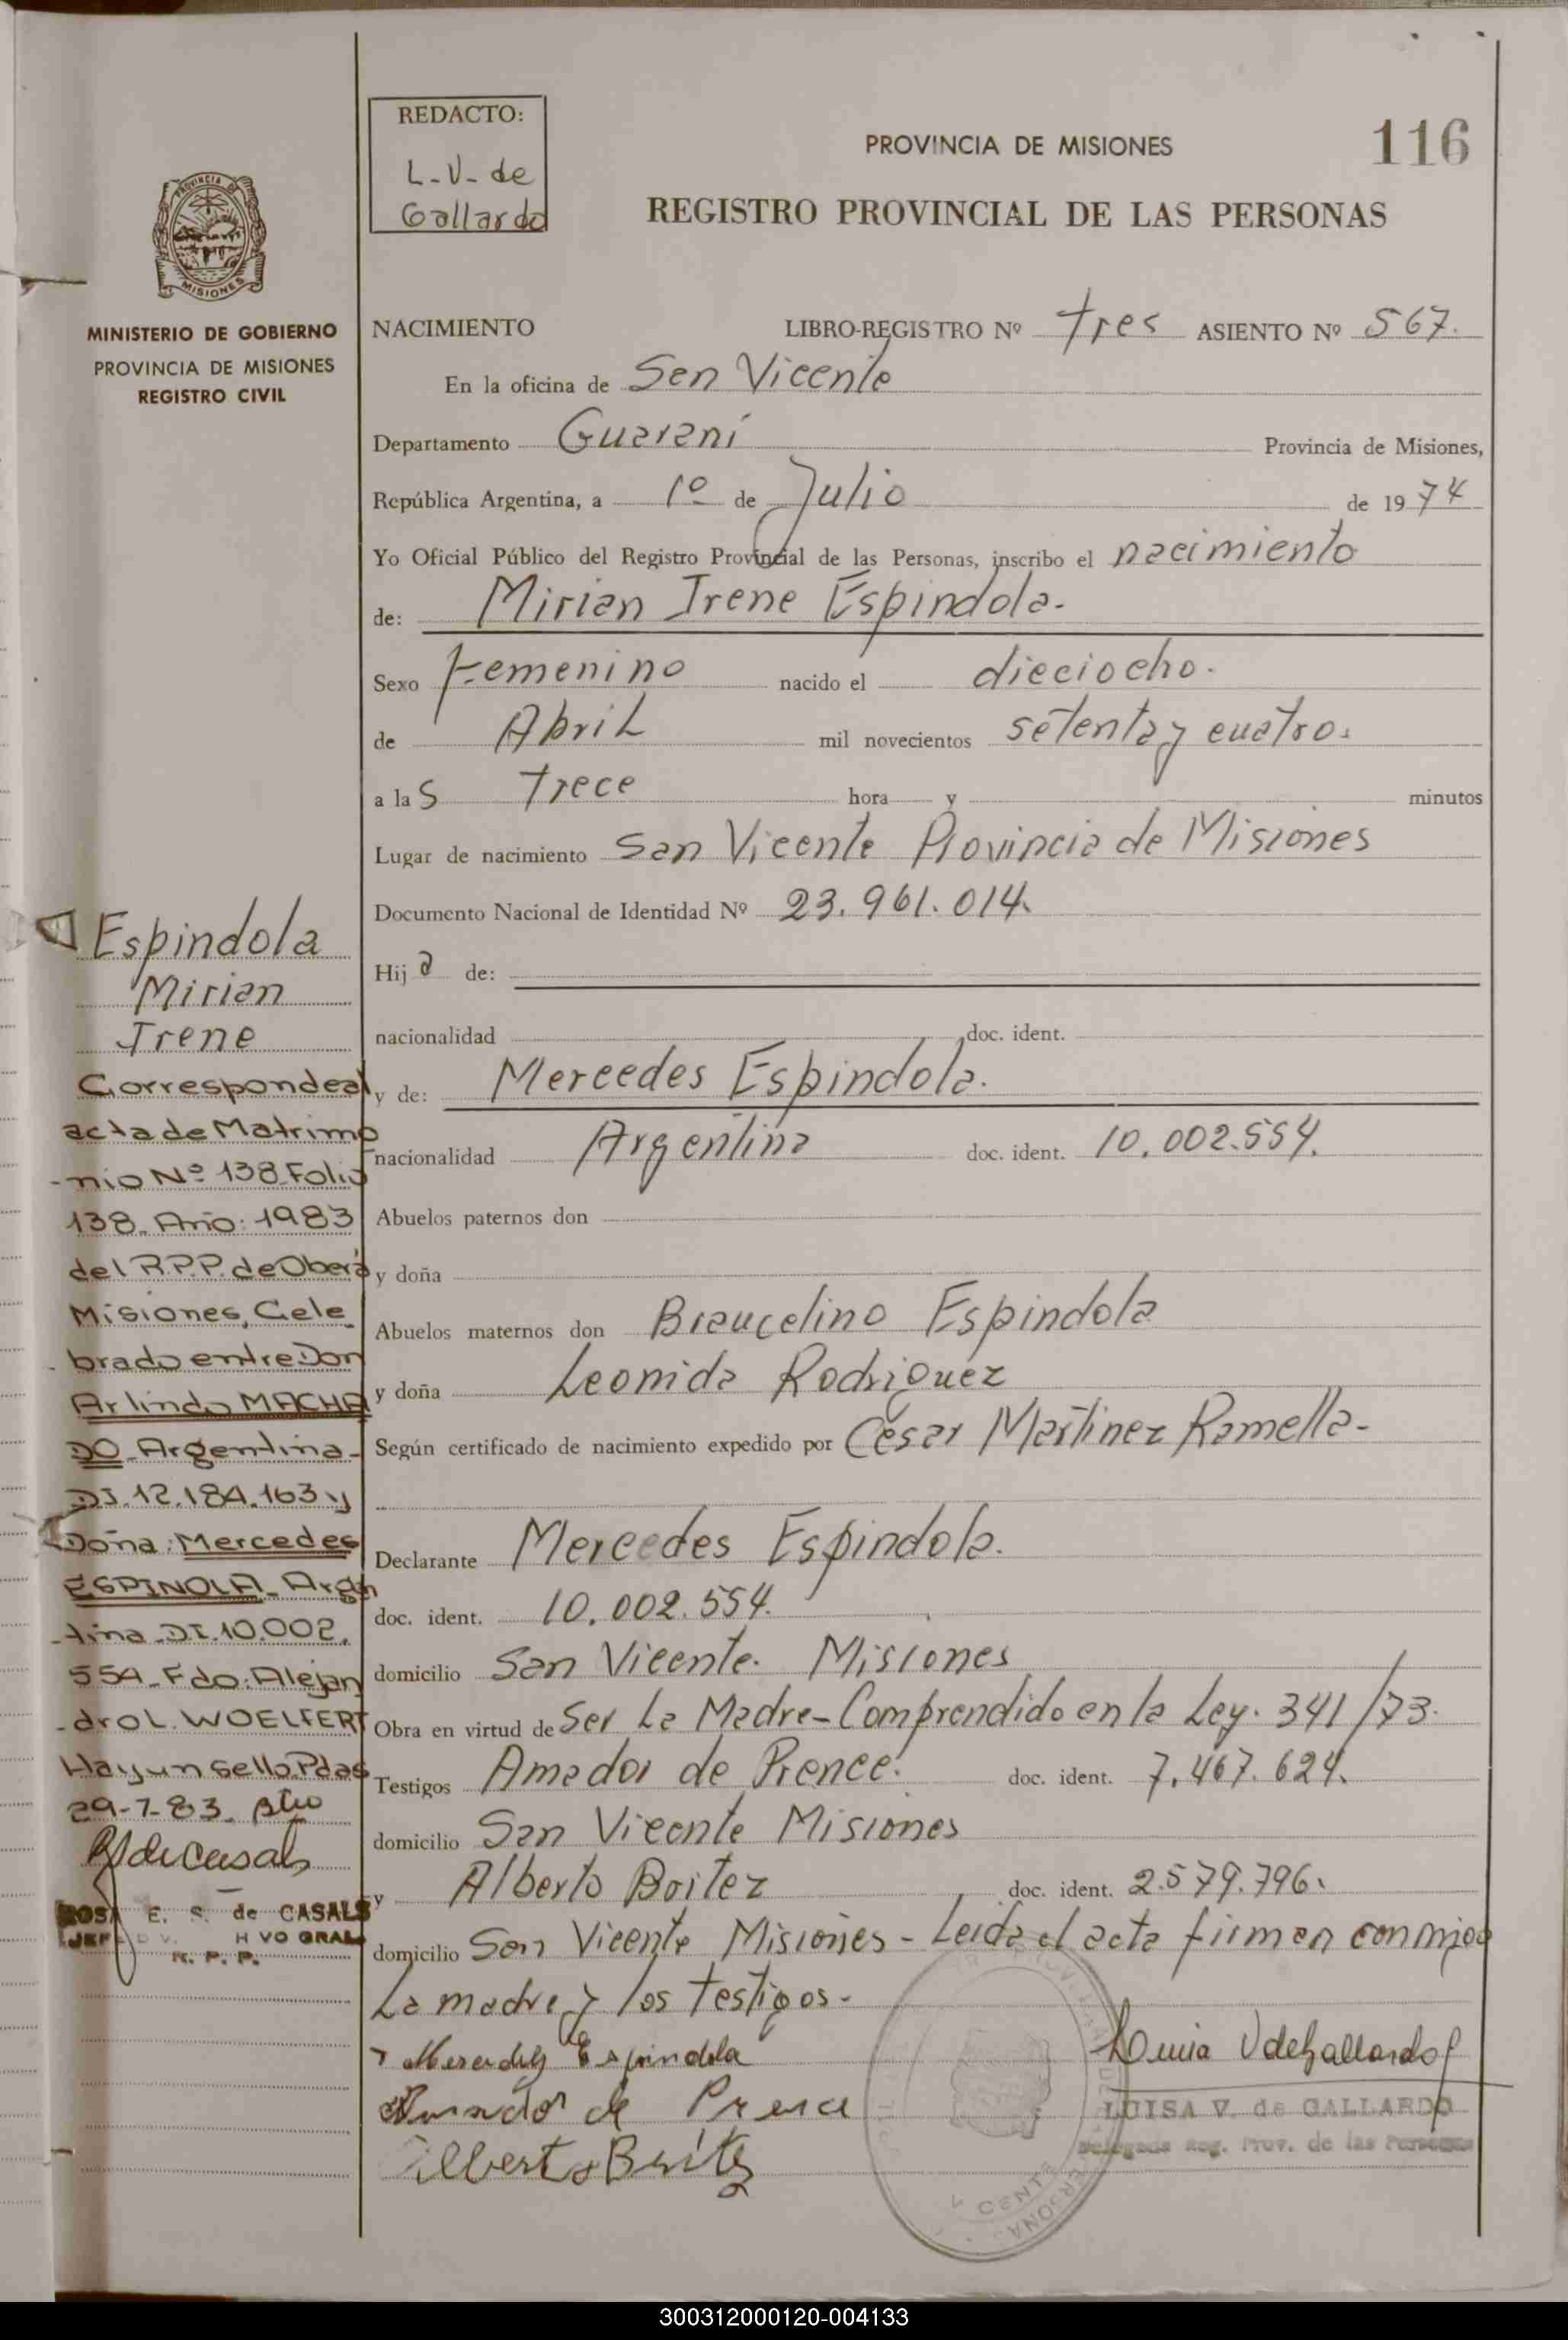 REDACTO:
L-V- de
Gallardo
PROVINCIA DE MISIONES
116
REGISTRO PROVINCIAL DE LAS PERSONAS
PROVINCIA DE
MISIONES
MINISTERIO DE GOBIERNO
PROVINCIA DE MISIONES
REGISTRO CIVIL
NACIMIENTO LIBRO-REGISTRO Nº tres ASIENTO Nº 567.
En la oficina de San Vicente
Departamento Guaraní Provincia de Misiones,
República Argentina, a 1º de Julio de 1974
Yo Oficial Público del Registro Provincial de las Personas, inscribo el nacimiento
de: Mirian Irene Espindola-
Sexo Femenino nacido el dieciocho.
de Abril mil novecientos setenta y cuatro.
a las trece hora y minutos
Lugar de nacimiento San Vicente Provincia de Misiones
Documento Nacional de Identidad Nº 23.961.014.
Hija de:
nacionalidad doc. ident.
y de: Mercedes Espindola.
nacionalidad Argentina doc. ident. 10.002.554.
Abuelos paternos don
y doña
Abuelos maternos don Braucelino Espindola
y doña Leonida Rodriguez
Según certificado de nacimiento expedido por César Martinez Ramella-
Declarante Mercedes Espindola.
doc. ident. 10.002.554.
domicilio San Vicente. Misiones
Obra en virtud de Ser La Madre-Comprendido en la Ley. 341/73.
Testigos Amador de Prence. doc. ident. 7.467.624.
domicilio San Vicente Misiones
y Alberto Boitez doc. ident. 2.579.796.
domicilio San Vicente Misiones - Leida el acta firman conmigo
La madre y los testigos-
Mercedes Espindola
Amador de Prence
Alberto Benitez
Luisa V de Gallardo
LUISA V. de GALLARDO
Delegada Reg. Prov. de las Personas
Espindola
Mirian
Irene
Corresponde al
acta de Matrimo
-nio Nº 138 Folio
138. Año: 1983
del R.P.P. de Oberá
Misiones, Cele
brado entre Don
Arlindo MACHA
DO Argentina-
DI.12.184.163 y
Doña: Mercedes
ESPINOLA Argen
-tina-DI.10.002.
554-Fdo: Alejan
-dro L. WOELFERT
Hay un sello. Pdas
29-7-83.
R S de Casals
ROSA E. S. de CASALS
R. P. P.
300312000120-004133